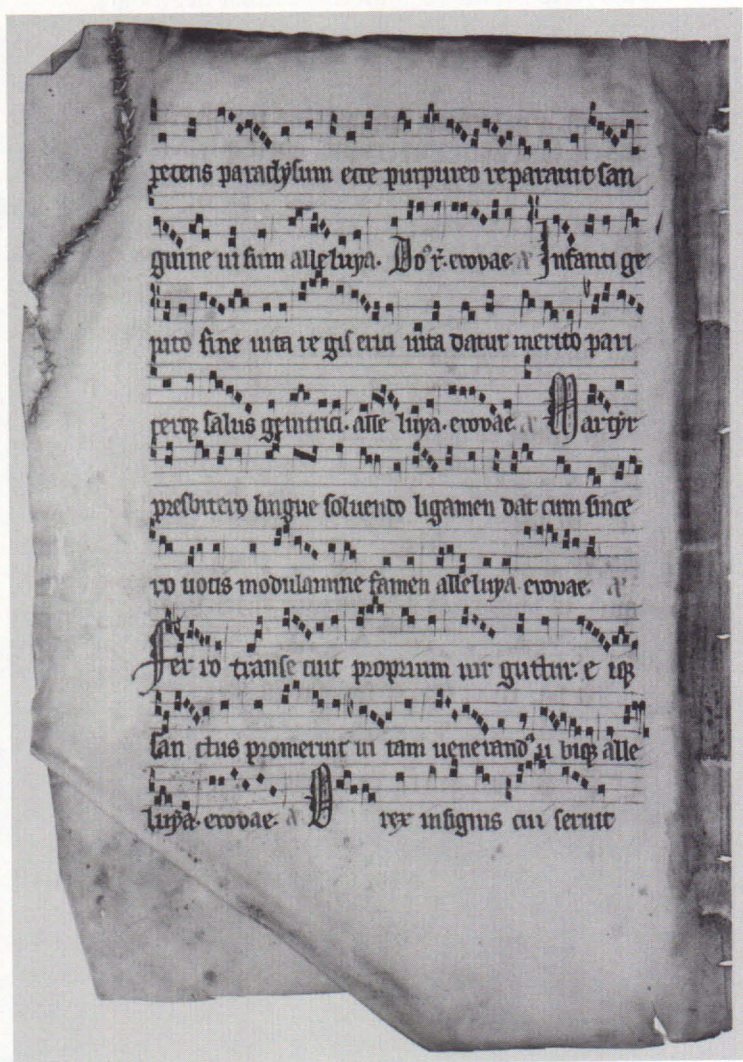 petens paradysum ecce purpureo reparauit san
guine uisum alleluya. Do² r̄. euouae a² Infanti ge
nito sine uita regis erici uita datur merito pari
terq salus genitrici. alle luya. euouae a² Martyr
presbitero lingue soluendo ligamen dat cum since
ro uotis modulamine famen alleluya euouae. a²
Fer ro transe cuit proprium uir guttur: e iq
san ctus promeruit ui tam uenerand² u biq alle
luya. euouae. a rex insignis cui seruit